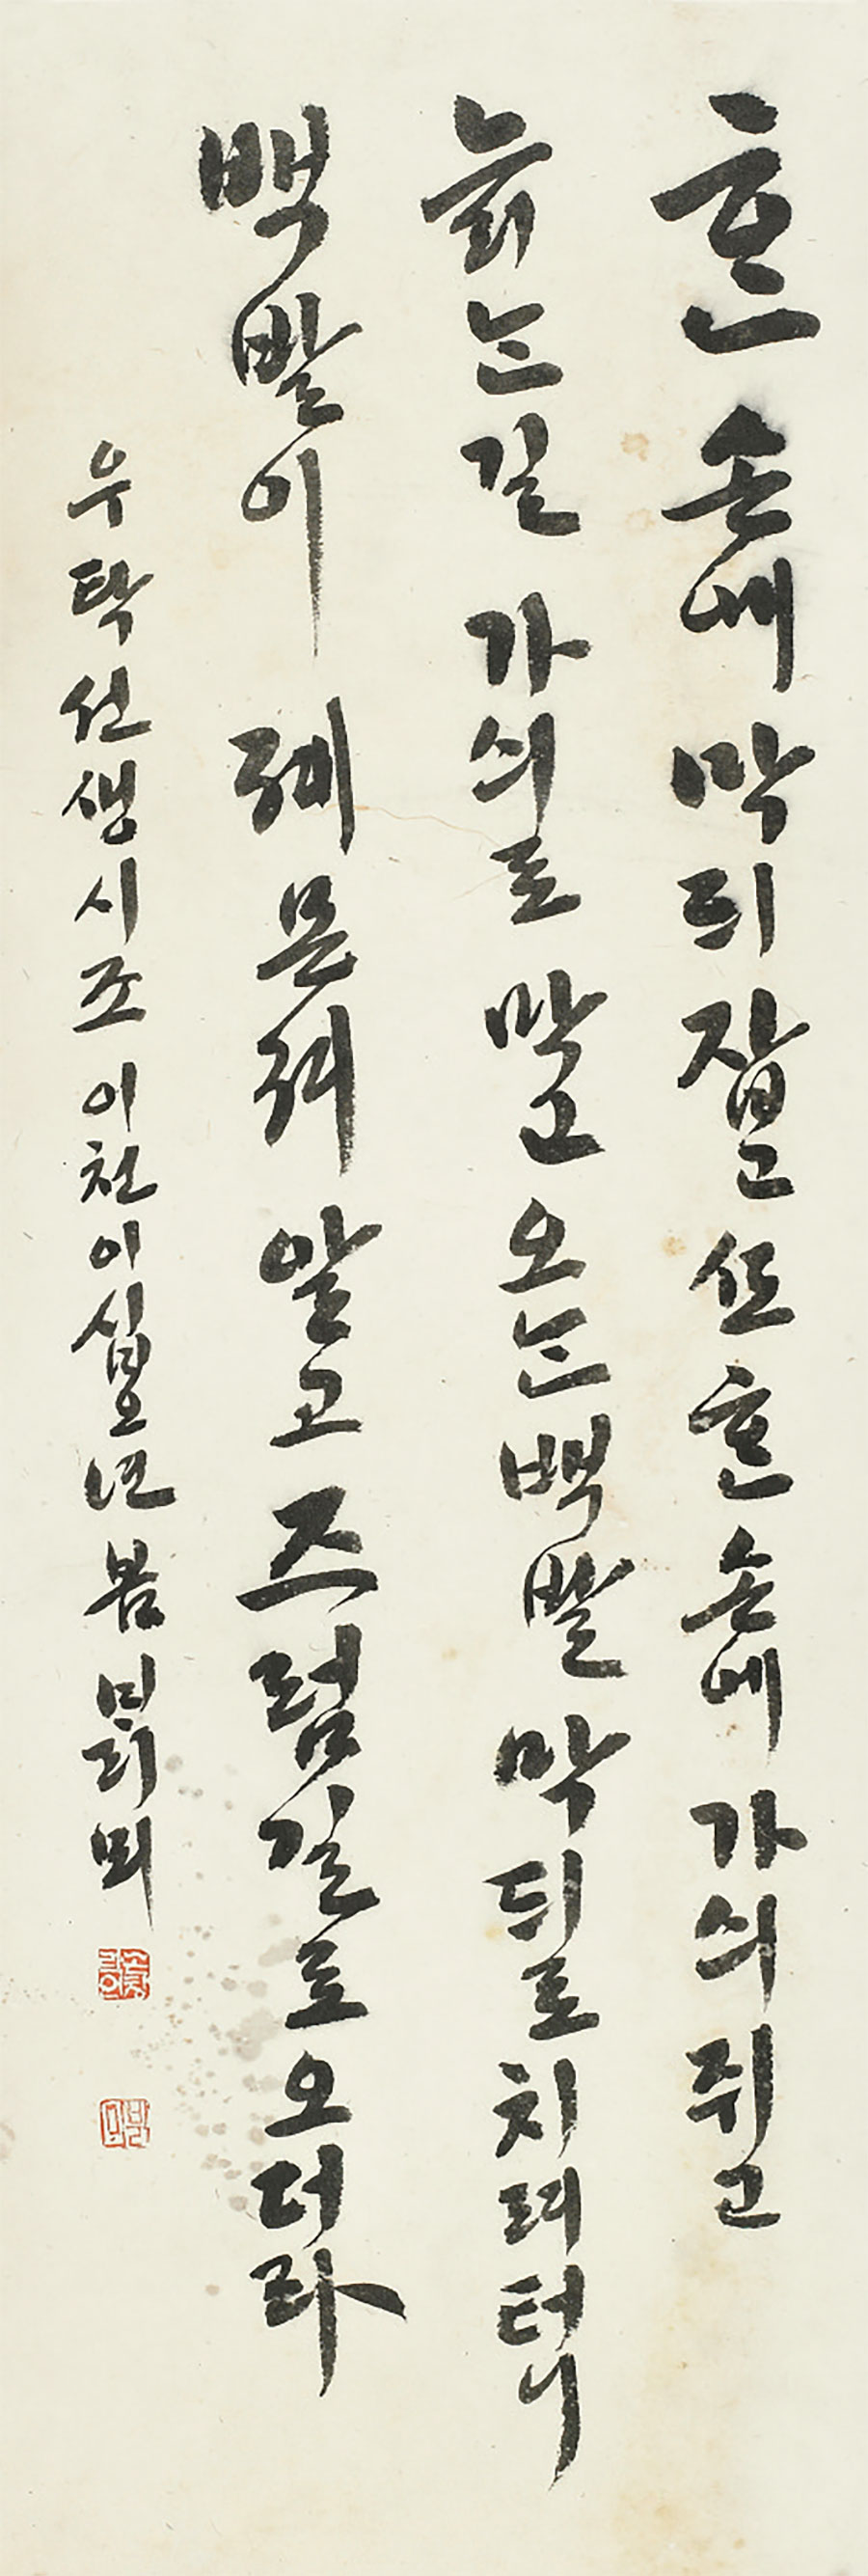 ᄒᆞᆫ 손에 막듸 잡고 ᄯᅩ ᄒᆞᆫ 손에 가싀 쥐고
늙는 길 가싀로 막고 오는 백발 막듸로 치려터니
백발이 제 몬져 알고 즈럼길로 오더라
우탁선생시조 이천이십오년 봄